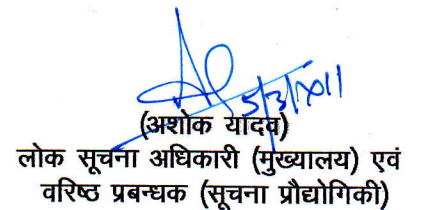 5/3/2011
(अशोक यादव)
लोक सूचना अधिकारी (मुख्यालय) एवं
वरिष्ठ प्रबन्धक (सूचना प्रौद्योगिकी)